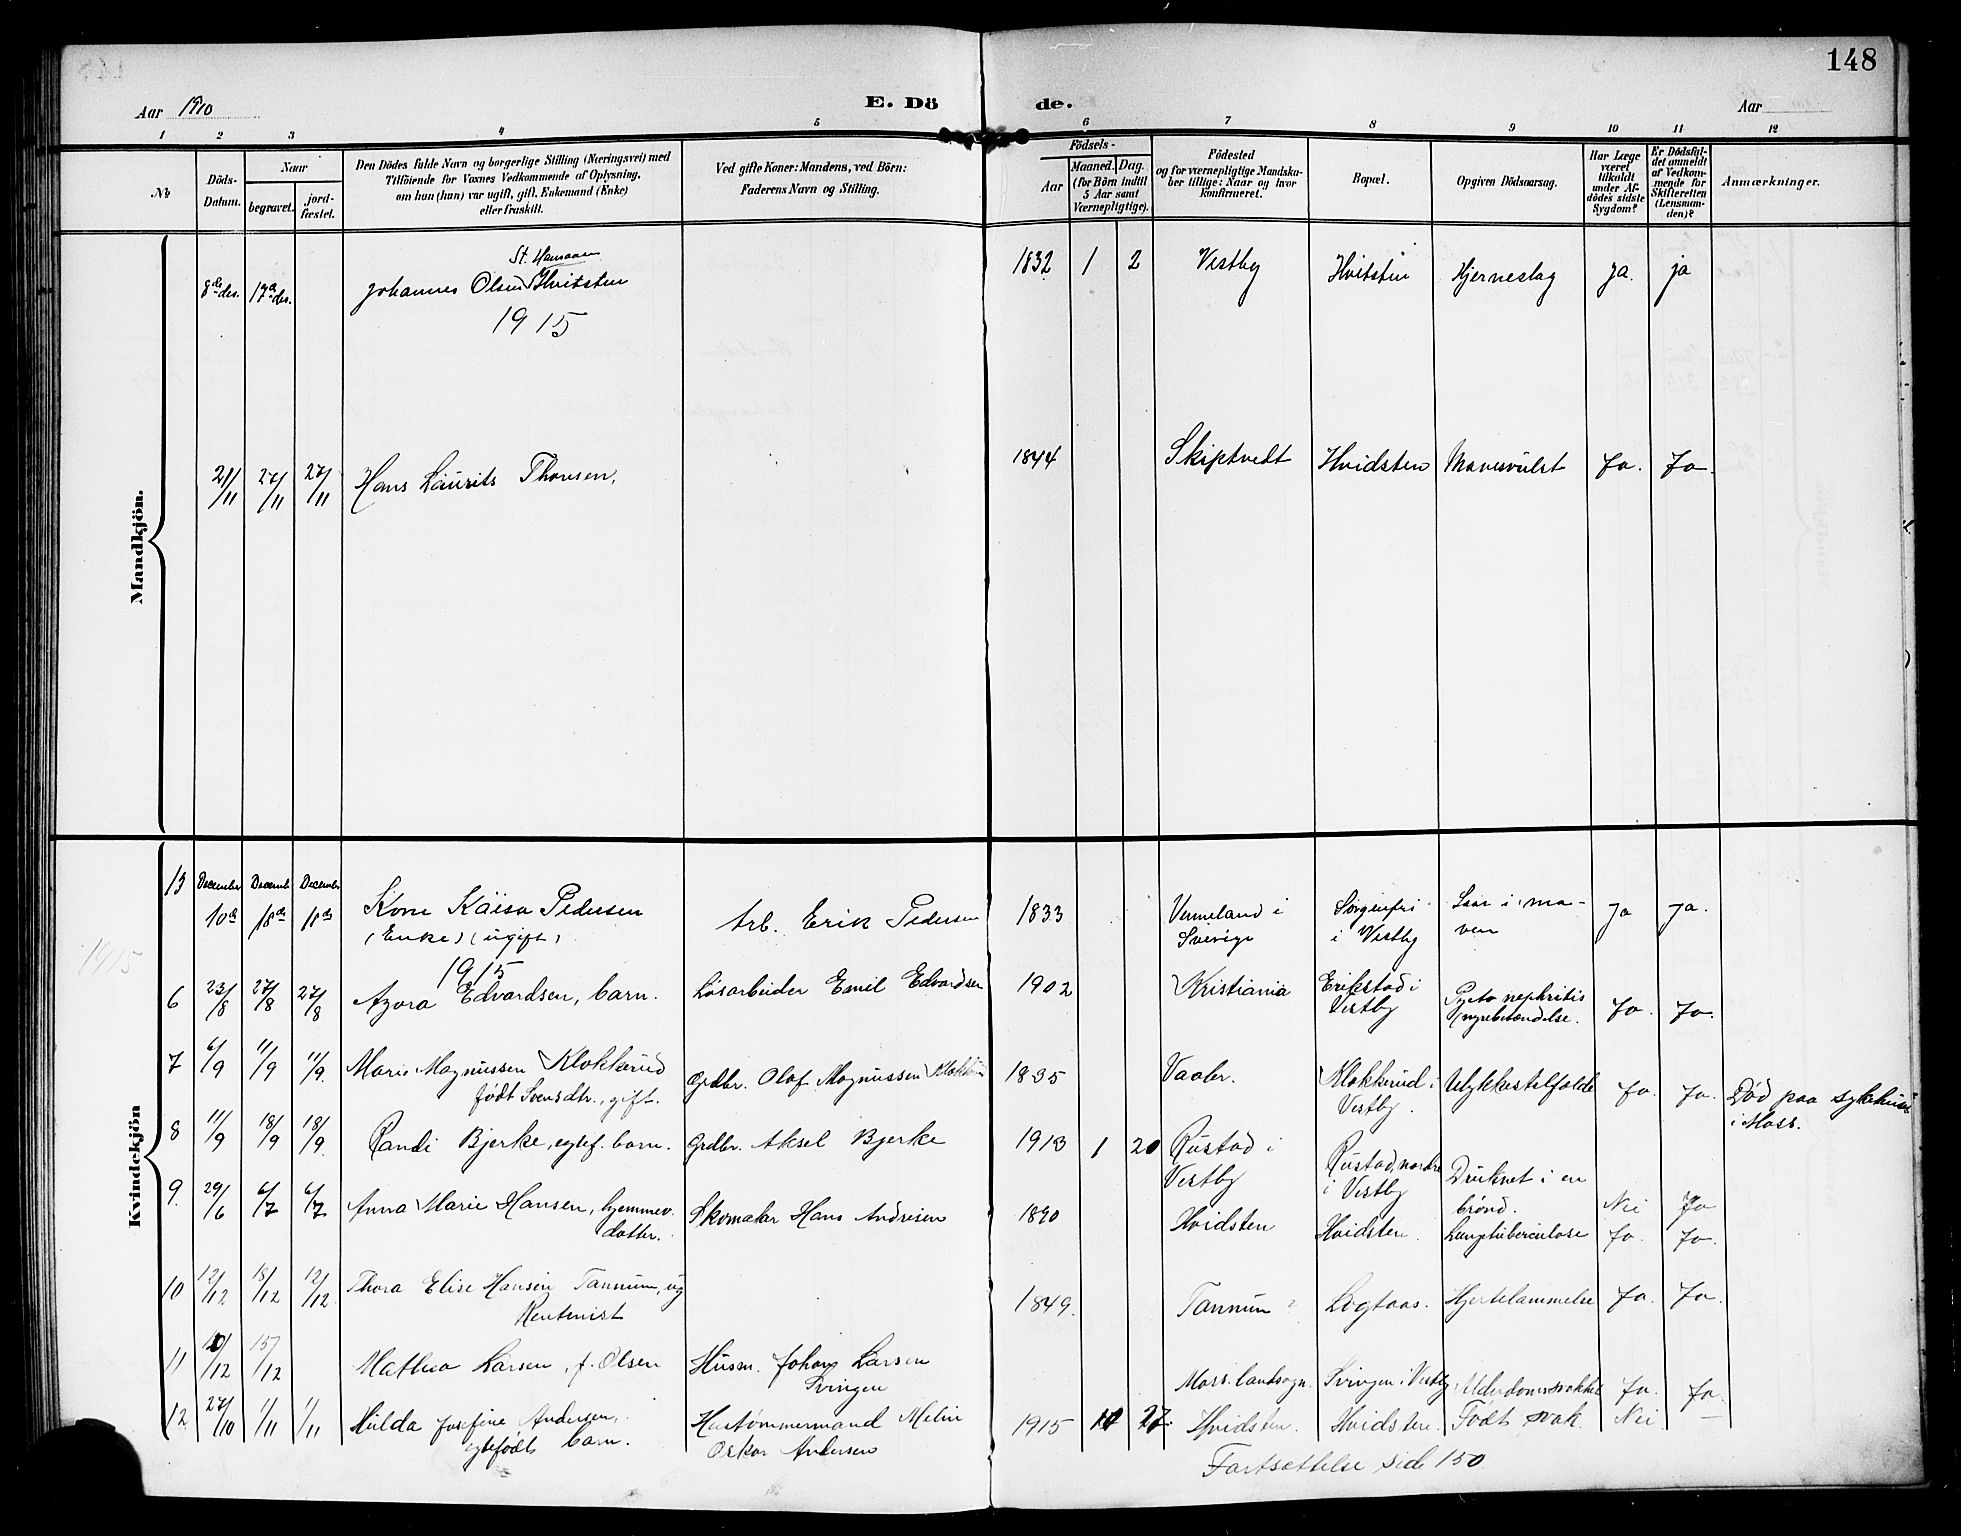 148
Aar 1910
E. Dö
de.
Aar
1 2 3 4 5 6 7 8 9 10 11 12
No
Döds-
Datum.
Naar
begravet.
jord-
fæstet.
Den Dödes fulde Navn og borgerlige Stilling (Næringsvei) med
Tilföiende for Voxnes Vedkommende af Oplysning,
om hun (han) var ugift, gift, Enkemand (Enke)
eller fraskilt.
Ved gifte Koner: Mandens, ved Börn:
Faderens Navn og Stilling.
Födsels-
Aar
Maaned. Dag.
(for Börn indtil
5 Aar samt
Værnepligtige).
Födested
og for værnepligtige Mandska-
ber tillige: Naar og hvor
konfirmeret.
Bopæl.
Opgiven Dödsaarsag.
Har Læge
været
tilkaldt
under Af-
dödes sidste
Sygdom?
Er Dödsfal-
det anmeldt
af Vedkom-
mende for
Skifteretten
(Lensman-
den)?
Anmærkninger.
Mandkjön.
St. Hansaaen
8de des. 17de des. Johannes Olsen Hvitsten 1832 1 2 Vestby Hvitsten Hjerneslag ja. ja
1915
21/11 27/11 27/11 Hans Laurits Thonsen, 1844 Skiptvedt Hvidsten Mavesvulst Ja. Ja.
Kvindekjön
13 December Decemb December
10de 18de 18de Kone Kaisa Pedersen Arb. Erik Pedersen 1833 Vermeland i Sorgenfri Saar i ma- ja ja.
(Enke) (ugift) Sverige i Vestby ven
1915
1915
6 23/8 27/8 27/8 Azora Edvardsen, barn. Løsarbeider Emil Edvardsen 1902 Kristiania Erikstad i Pyelo nephritis Ja. Ja.
Vestby (nyrebetændelse.
7 6/9 11/9 11/9. Marie Magnussen Klokkerud Grdbr. Olaf Magnussen Klokkerud 1835 Vaaler. Klokkerud i Ulykkestilfælde Ja. Ja. Død paa sykehuset
født Svensdtr., gift. Vestby. i Moss.
8 11/9 18/9 18/9. Randi Bjerke, egtef. barn. Grdbr. Aksel Bjerke 1913 1 20 Rustad i Rustad, nordre Druknet i en
Vestby i Vestby brønd. Nei Ja
9 29/6 6/7 6/7 Anna Marie Hansen, hjemmev. Skomaker Hans Andresen 1890 Hvidsten Hvidsten. Lungetuberculose Ja. Ja.
datter.
10 12/12 18/12 12/12. Thora Elise Hansen Tannum, ug 1849. Tannum ? Logtaas. Hjertelammelse Ja. Ja.
Rentenist
11 10/12 15/12 Mathea Larsen, f. Olsen Husm. Johans Larsen Moss landsogn. Svingen i Vestby Alderdomssvakhet Ja. Ja.
Svingen
12 27/10 1/11 1/11 Hulda Josefine Andersen, Hustømmermand Melin 1915 10 27. Hvidsten. Hvidsten. Født svak. Nei —
egtefødt barn. Oskar Andersen
Fortsættelse side 150